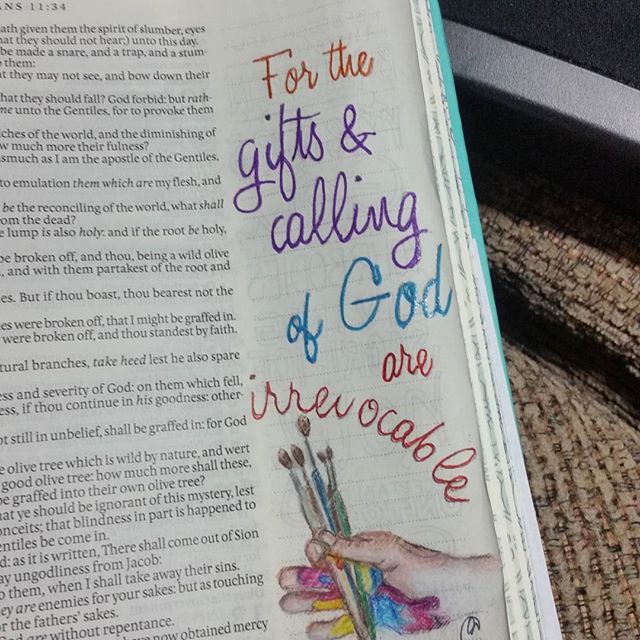 NS 11:34
ath given them the spirit of slumber, eyes
at they should not hear;) unto this day.
be made a snare, and a trap, and a stum-
them:
t they may not see, and bow down their
hat they should fall? God forbid: but rath-
me unto the Gentiles, for to provoke them
ches of the world, and the diminishing of
w much more their fulness?
smuch as I am the apostle of the Gentiles,
to emulation them which are my flesh, and
be the reconciling of the world, what shall
om the dead?
e lump is also holy: and if the root be holy,
be broken off, and thou, being a wild olive
, and with them partakest of the root and
es. But if thou boast, thou bearest not the
es were broken off, that I might be graffed in.
were broken off, and thou standest by faith.
tural branches, take heed lest he also spare
ess and severity of God: on them which fell,
ess, if thou continue in his goodness: other-
ot still in unbelief, shall be graffed in: for God
e olive tree which is wild by nature, and wert
good olive tree: how much more shall these,
be graffed into their own olive tree?
at ye should be ignorant of this mystery, lest
onceits; that blindness in part is happened to
entiles be come in.
d: as it is written, There shall come out of Sion
ay ungodliness from Jacob:
o them, when I shall take away their sins.
ey are enemies for your sakes: but as touching
r the fathers' sakes.
are without repentance.
now obtained mercy
For the
gifts &
calling
of God
are
irrevocable